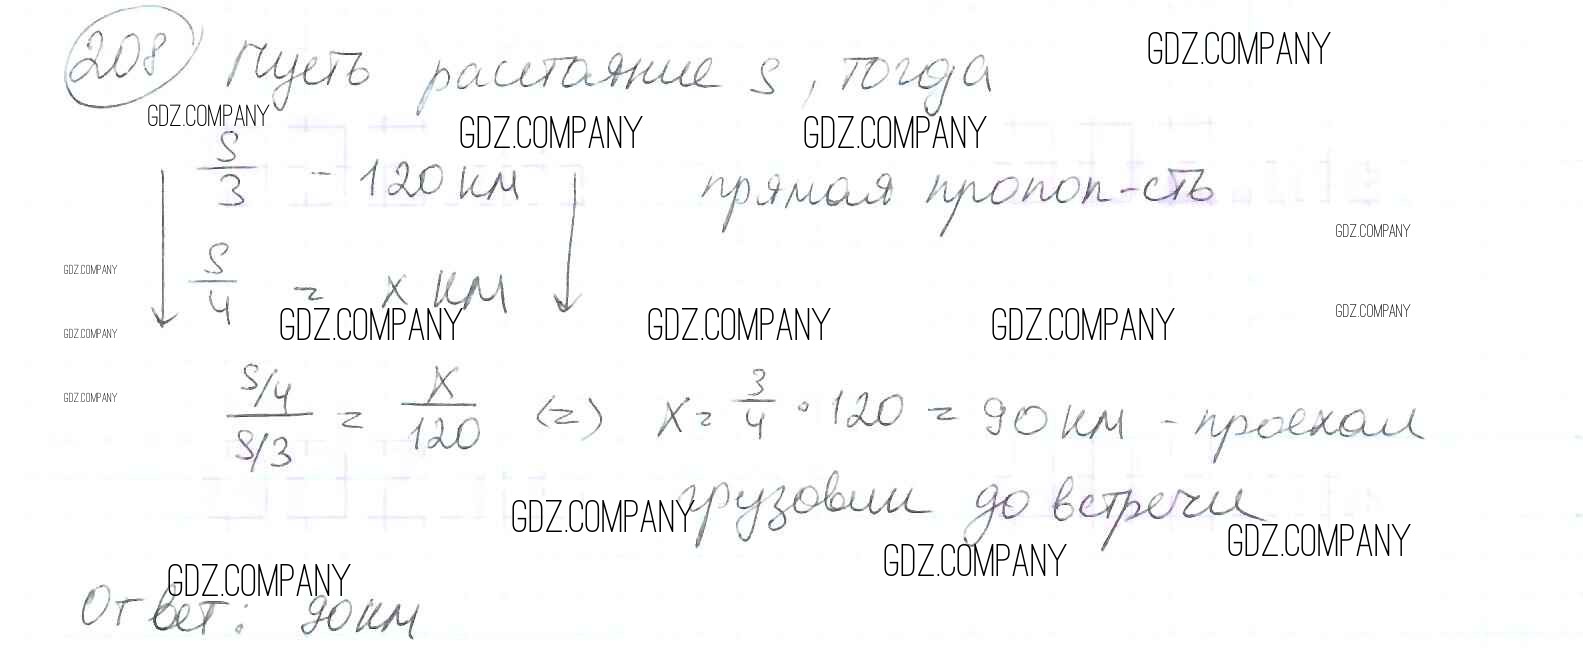 208 Пусть расстояние S, тогда
GDZ.COMPANY
GDZ.COMPANY
GDZ.COMPANY GDZ.COMPANY
S/3 - 120 км прямая пропоп-сть
GDZ.COMPANY
GDZ.COMPANY
S/4 = x км
GDZ.COMPANY GDZ.COMPANY GDZ.COMPANY GDZ.COMPANY
GDZ.COMPANY
GDZ.COMPANY
(S/4)/(S/3) = X/120 (=) X = 3/4 · 120 = 90 км - проехал
грузовик до встречи
GDZ.COMPANY
GDZ.COMPANY GDZ.COMPANY
GDZ.COMPANY
Ответ: 90 км